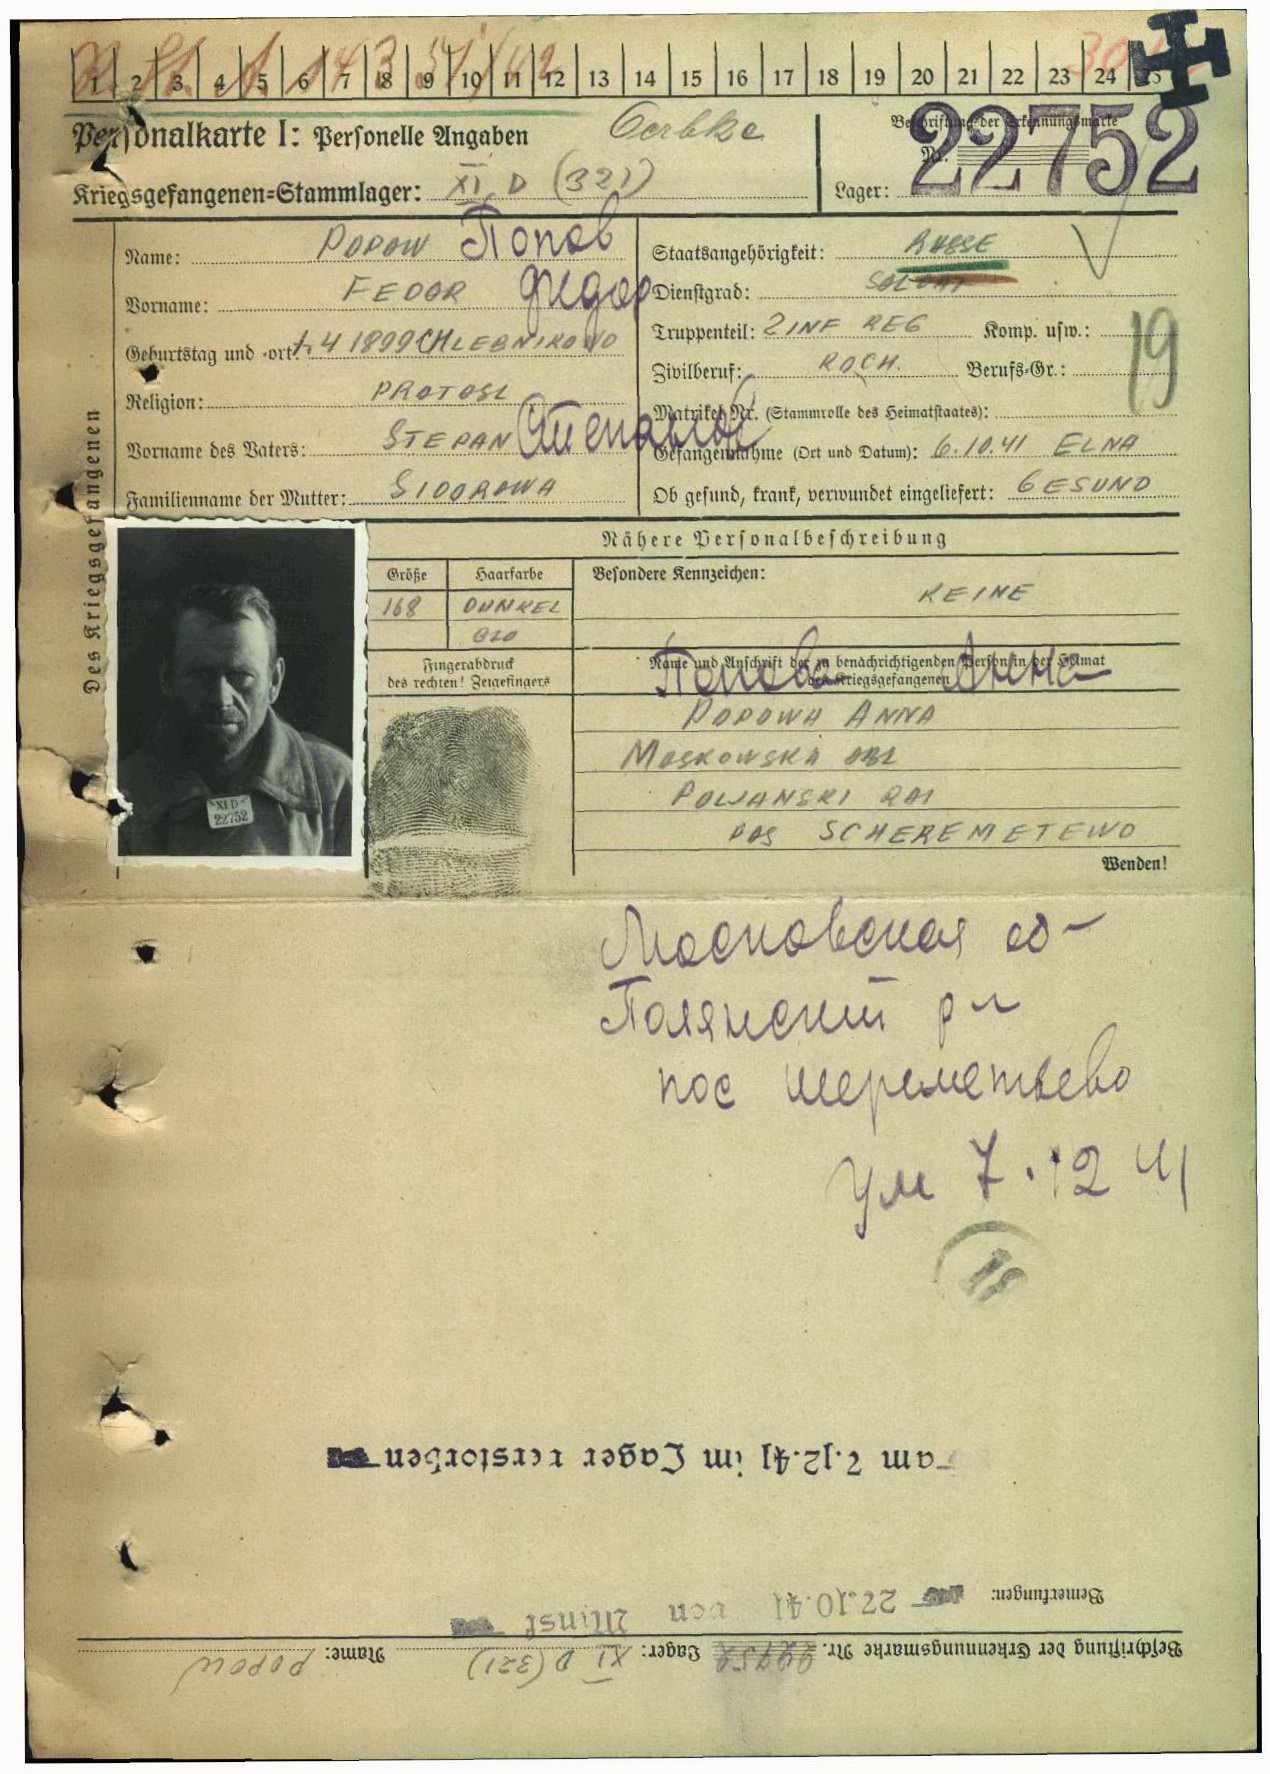 1 2 3 4 5 6 7 8 9 10 11 12 13 14 15 16 17 18 19 20 21 22 23 24 25
Personalkarte I: Personelle Angaben
Oerbke
Beschriftung der Erkennungsmarke
Nr. 22752
Kriegsgefangenen-Stammlager: XI D (321)
Lager:
Des Kriegsgefangenen
Name: POPOW Попов
Vorname: FEDOR Федор
Geburtstag und -ort: 4 1899 CHLEBNIKOWO
Religion:
Vorname des Vaters: STEPAN
Familienname der Mutter: SIDOROWA
Staatsangehörigkeit: RUSSE
Dienstgrad: SOLDAT
Truppenteil: 2 INF REG Komp. usw.:
19
Zivilberuf: KOCH. Berufs-Gr.:
Matrikel Nr. (Stammrolle des Heimatstaates):
Gefangennahme (Ort und Datum): 6.10.41 ELNA
Ob gesund, krank, verwundet eingeliefert: GESUND
Nähere Personalbeschreibung
Größe
Haarfarbe
Besondere Kennzeichen:
168
DUNKEL
KEINE
Fingerabdruck
des rechten! Zeigefingers
Name und Anschrift der zu benachrichtigenden Person in der Heimat
des Kriegsgefangenen
Попова Анна
POPOWA ANNA
MOSKOWSKA OBL
POLJANSKI RAI
POS SCHEREMETEWO
XI D
22752
Wenden!
Московская об-
Полянский р-н
пос шереметьево
ум 7.12 41
19
am 7.12.41 im Lager verstorben
Bemerkungen: 27.10.41 von Minsk
Beschriftung der Erkennungsmarke Nr. 22752 Lager: XI D (321) Name: POPOW